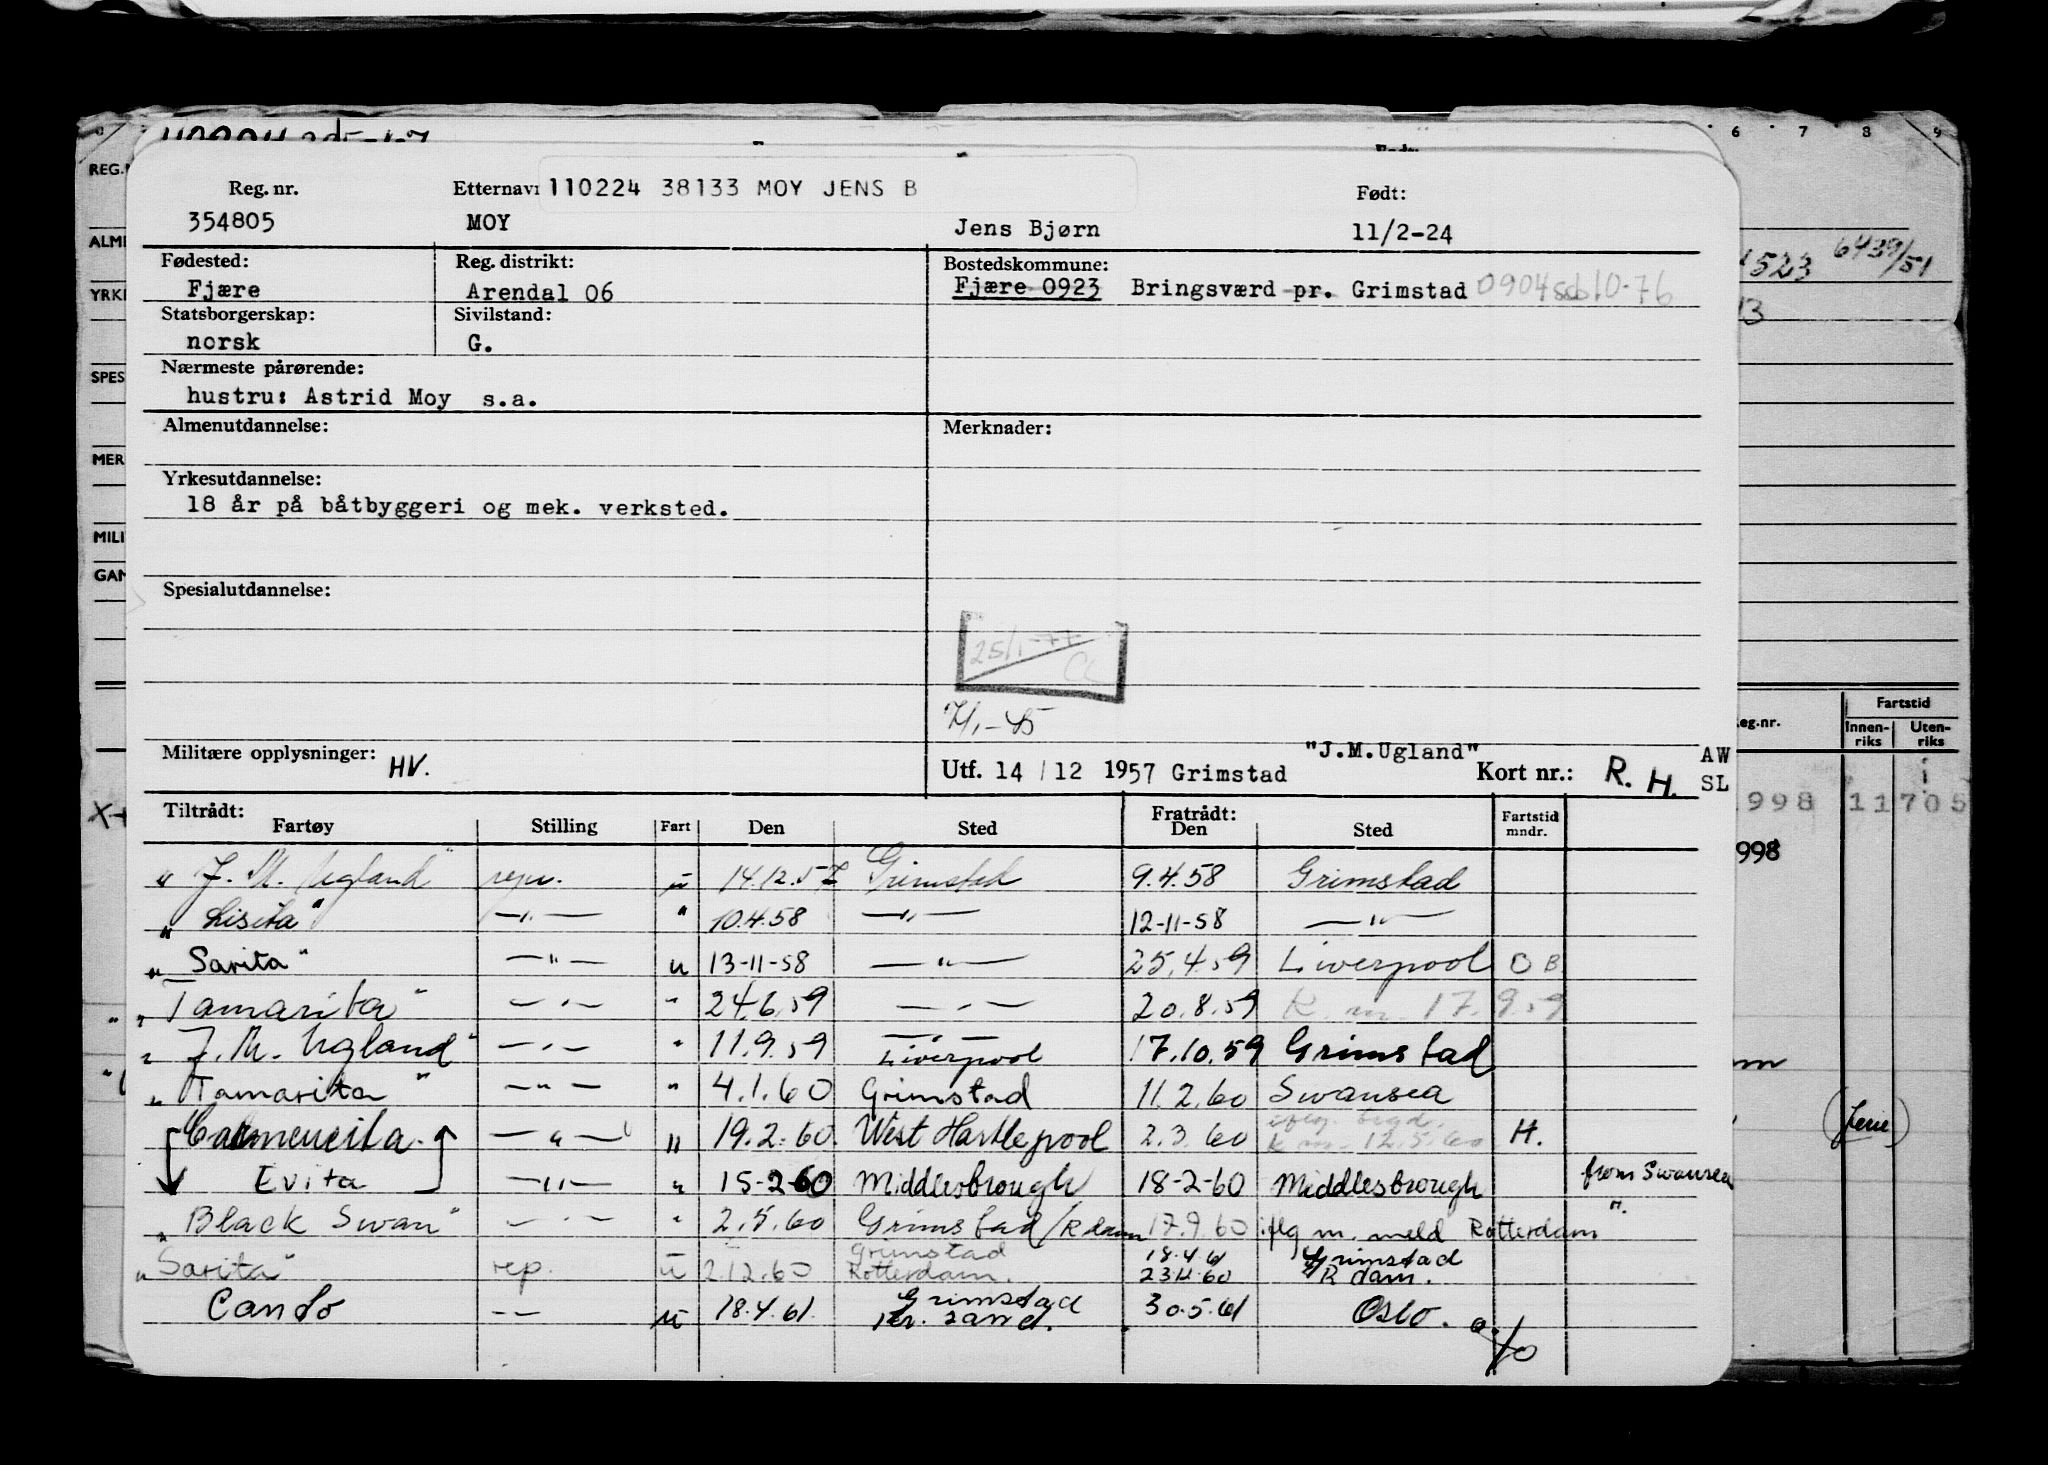 6 7 8 9
REG.
Reg. nr. Etternavn 110224 38133 MOY JENS B Født:
354805 MOY Jens Bjørn 11/2-24
ALM
Fødested: Reg. distrikt: Bostedskommune:
Fjære Arendal 06 Fjære 0923 Bringsværd pr. Grimstad 0904 ssb 10-76
523 6439/51
YRK
Statsborgerskap: Sivilstand:
norsk G.
13
Nærmeste pårørende:
SPES
hustru: Astrid Moy s.a.
Almenutdannelse: Merknader:
MER
Yrkesutdannelse:
18 år på båtbyggeri og mek. verksted.
MILI
GAN
Spesialutdannelse:
25/1-77
CL
7/1-45
eg.nr. Fartstid
Innen-riks Uten-riks
Militære opplysninger: HV. Utf. 14/12 1957 Grimstad "J.M.Ugland" Kort nr.: R. H. AW
SL
998 11705
998
Tiltrådt: Fratrådt:
Fartøy Stilling Fart Den Sted Den Sted Fartstid mndr.
"J. M. Ugland" rep. u 14.12.57 Grimstad 9.4.58 Grimstad
"Lisita" —"— " 10.4.58 —"— 12-11-58 —"—
"Sarita" —"— u 13-11-58 —"— 25.4.59 Liverpool O B
"Tamarita" —"— " 24.6.59 —"— 20.8.59 K. m. 17.9.59
"J. M. Ugland" —"— " 11.9.59 —"— Liverpool 17.10.59 Grimstad
"Tamarita" —"— " 4.1.60 Grimstad 11.2.60 Swansea
Carmencita —"— " 19.2.60 West Hartlepool 2.3.60 K m. 12.5.60 H.
Evita —"— " 15-2-60 Middlesbrough 18-2-60 Middlesbrough from Swansea
"Black Swan" —"— " 2.5.60 Grimstad/R dam 17.9.60 iflg m. meld Rotterdam ".
"Sarita" rep. u 2.12.60 Grimstad Rotterdam. 18.4.61 Grimstad
23.11.60 R dam.
Cando -- u 18.4.61. Grimstad Kr. sand. 30.5.61 Oslo.
(Jerie)